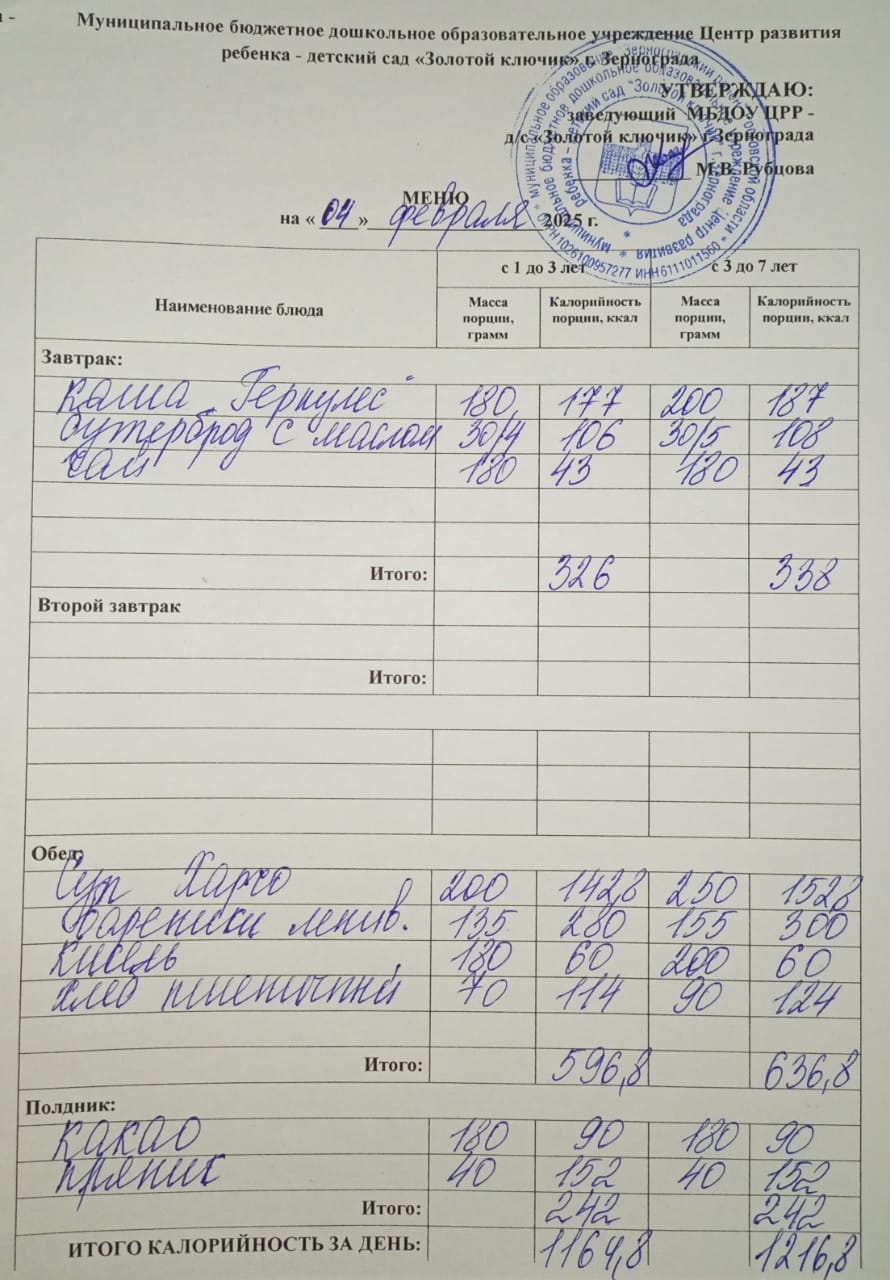 Муниципальное бюджетное дошкольное образовательное учреждение Центр развития
ребенка - детский сад «Золотой ключик» г. Зернограда
УТВЕРЖДАЮ:
заведующий МБДОУ ЦРР -
д/с «Золотой ключик» г.Зернограда
М.В. Рубцова
МЕНЮ
на « 04 » февраля 2025 г.
Наименование блюда
с 1 до 3 лет с 3 до 7 лет
Масса порции, грамм Калорийность порции, ккал Масса порции, грамм Калорийность порции, ккал
Завтрак:
каша "Геркулес" 180 177 200 187
бутерброд с маслом 30/4 106 30/5 108
чай 180 43 180 43
Итого: 326 338
Второй завтрак
Итого:
Обед:
Суп Харчо 200 142,8 250 152,8
Вареники ленив. 135 280 155 300
кисель 180 60 200 60
хлеб пшеничный 70 114 90 124
Итого: 596,8 636,8
Полдник:
какао 180 90 180 90
пряник 40 152 40 152
Итого: 242 242
ИТОГО КАЛОРИЙНОСТЬ ЗА ДЕНЬ: 1164,8 1216,8
ОГРН1026100957277 ИНН6111011560